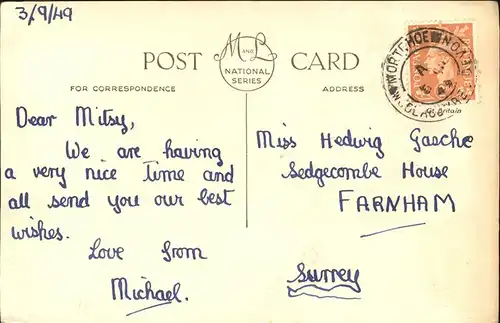 3/9/49
POST CARD
M AND L
NATIONAL
SERIES
FOR CORRESPONDENCE
ADDRESS
MORTEHOE
WOOLACOMBE
DEVON
Britain
Dear Mitsy,
We are having
a very nice time and
all send you our best
wishes.
Love from
Michael.
Miss Hedwig Gasche
Sedgecombe House
FARNHAM
Surrey